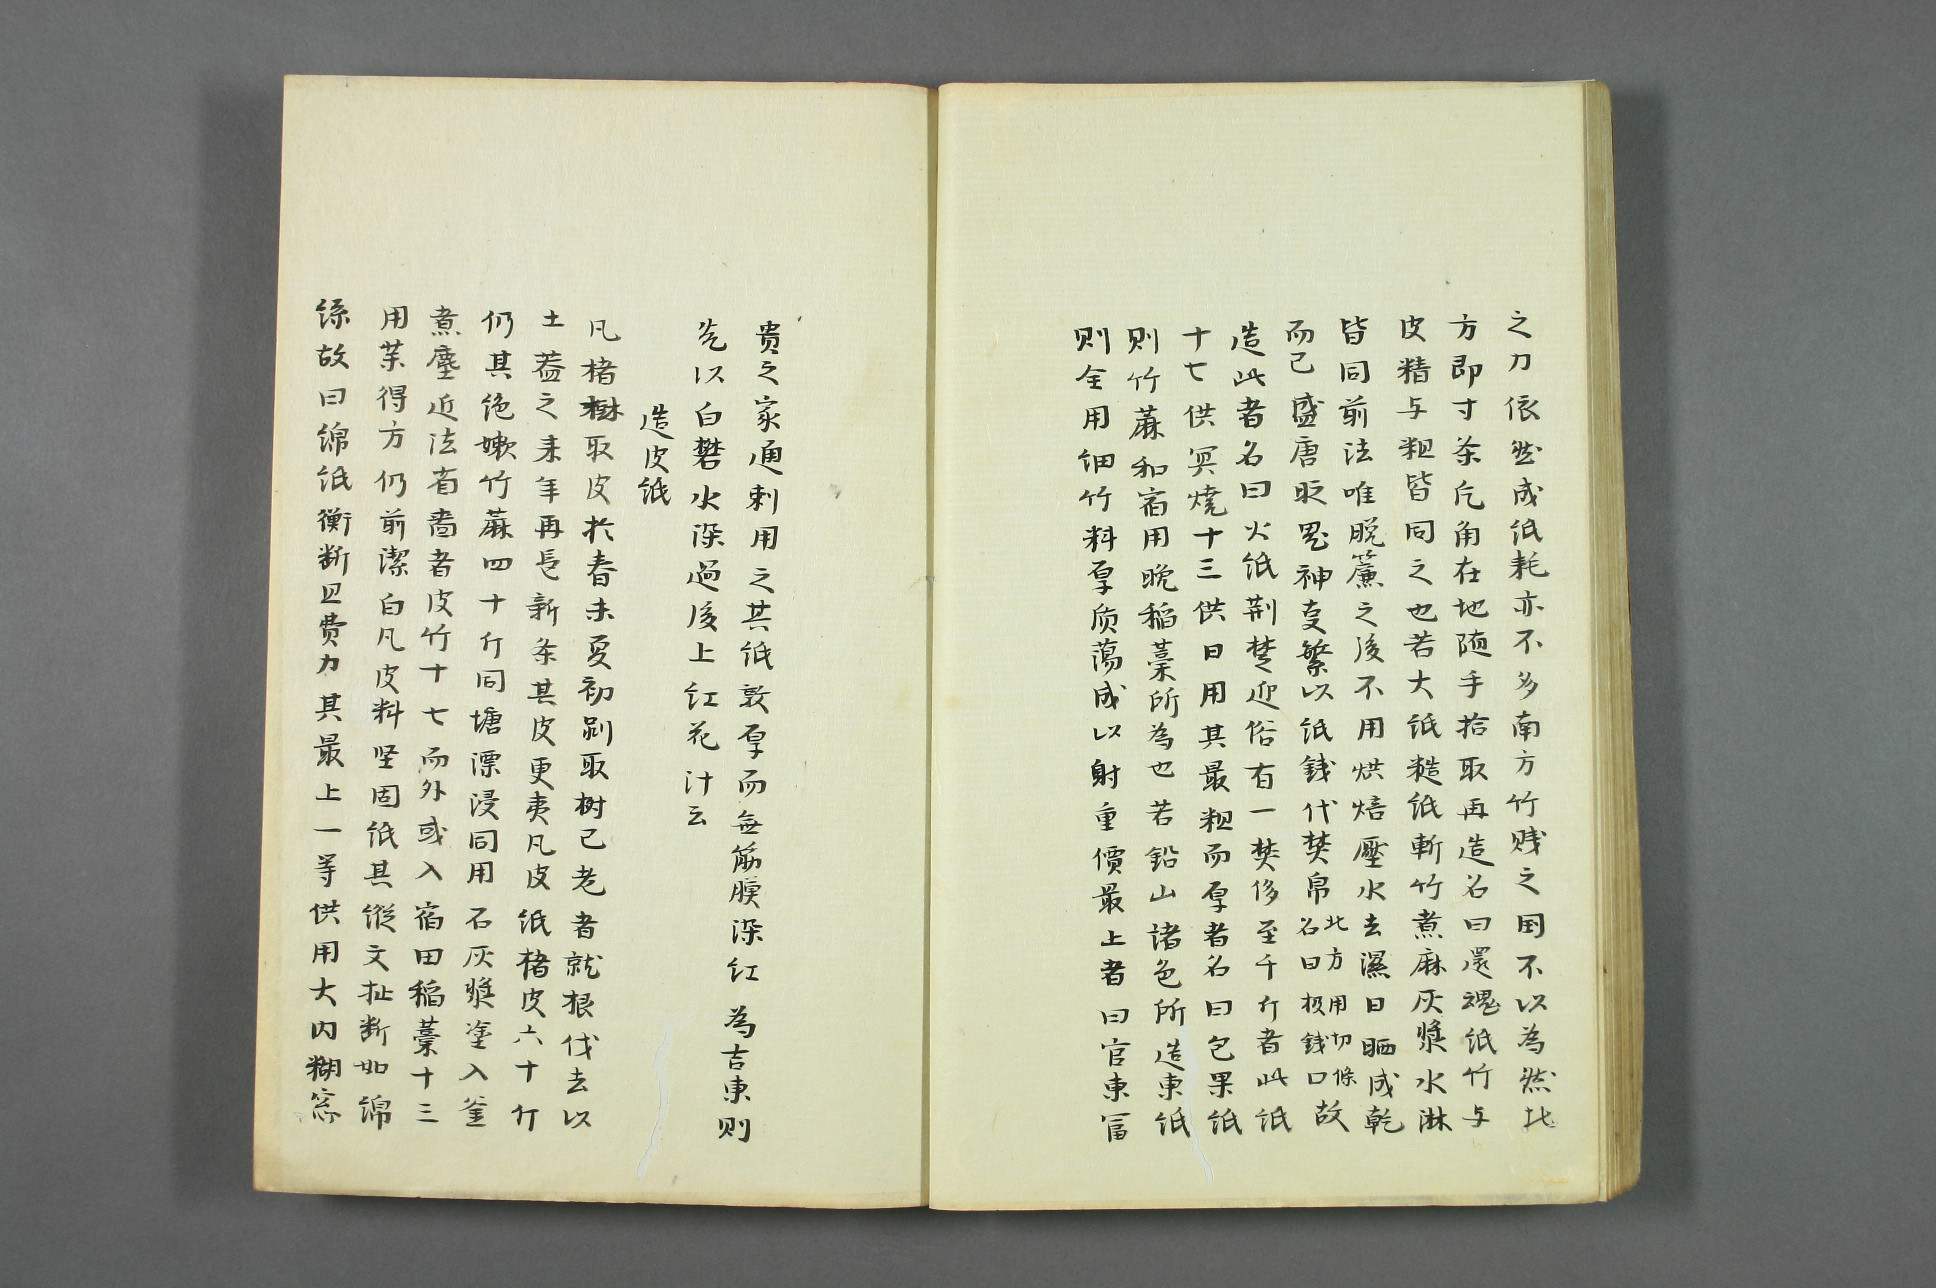 之力依然成纸耗亦不多南方竹贱之用不以為然北
方即寸条片角在地随手拾取再造名曰還魂纸竹与
皮精与粗皆同之也若大纸糙纸斬竹煮麻灰漿水淋
皆同前法唯脱簾之後不用烘焙壓水去濕日晒成乾
而已盛唐时鬼神事繁以纸錢代焚帛北方用切條名曰板錢口故
造此者名曰火纸荆楚近俗有一焚侈至千斤者此纸
十七供冥燒十三供日用其最粗而厚者名曰包果纸
则竹蔴和宿用晚稲藁所為也若鉛山諸色所造柬纸
则全用细竹料厚质蕩成以射重價最上者曰官柬冨
贵之家通刺用之其纸敦厚而無筋膜染红為吉柬则
先以白礬水染過後上红花汁云
造皮纸
凡楮樹取皮於春末夏初剥取树已老者就根伐去以
土蓋之来年再長新条其皮更美凡皮纸楮皮六十斤
仍其绝嫩竹蔴四十斤同塘漂浸同用石灰漿塗入釜
煮塵近法省嗇者皮竹十七而外或入宿田稲藁十三
用茱得方仍前潔白凡皮料坚固纸其縱文扯断如绵
絲故曰绵纸衡断且费力其最上一等供用大内糊窓